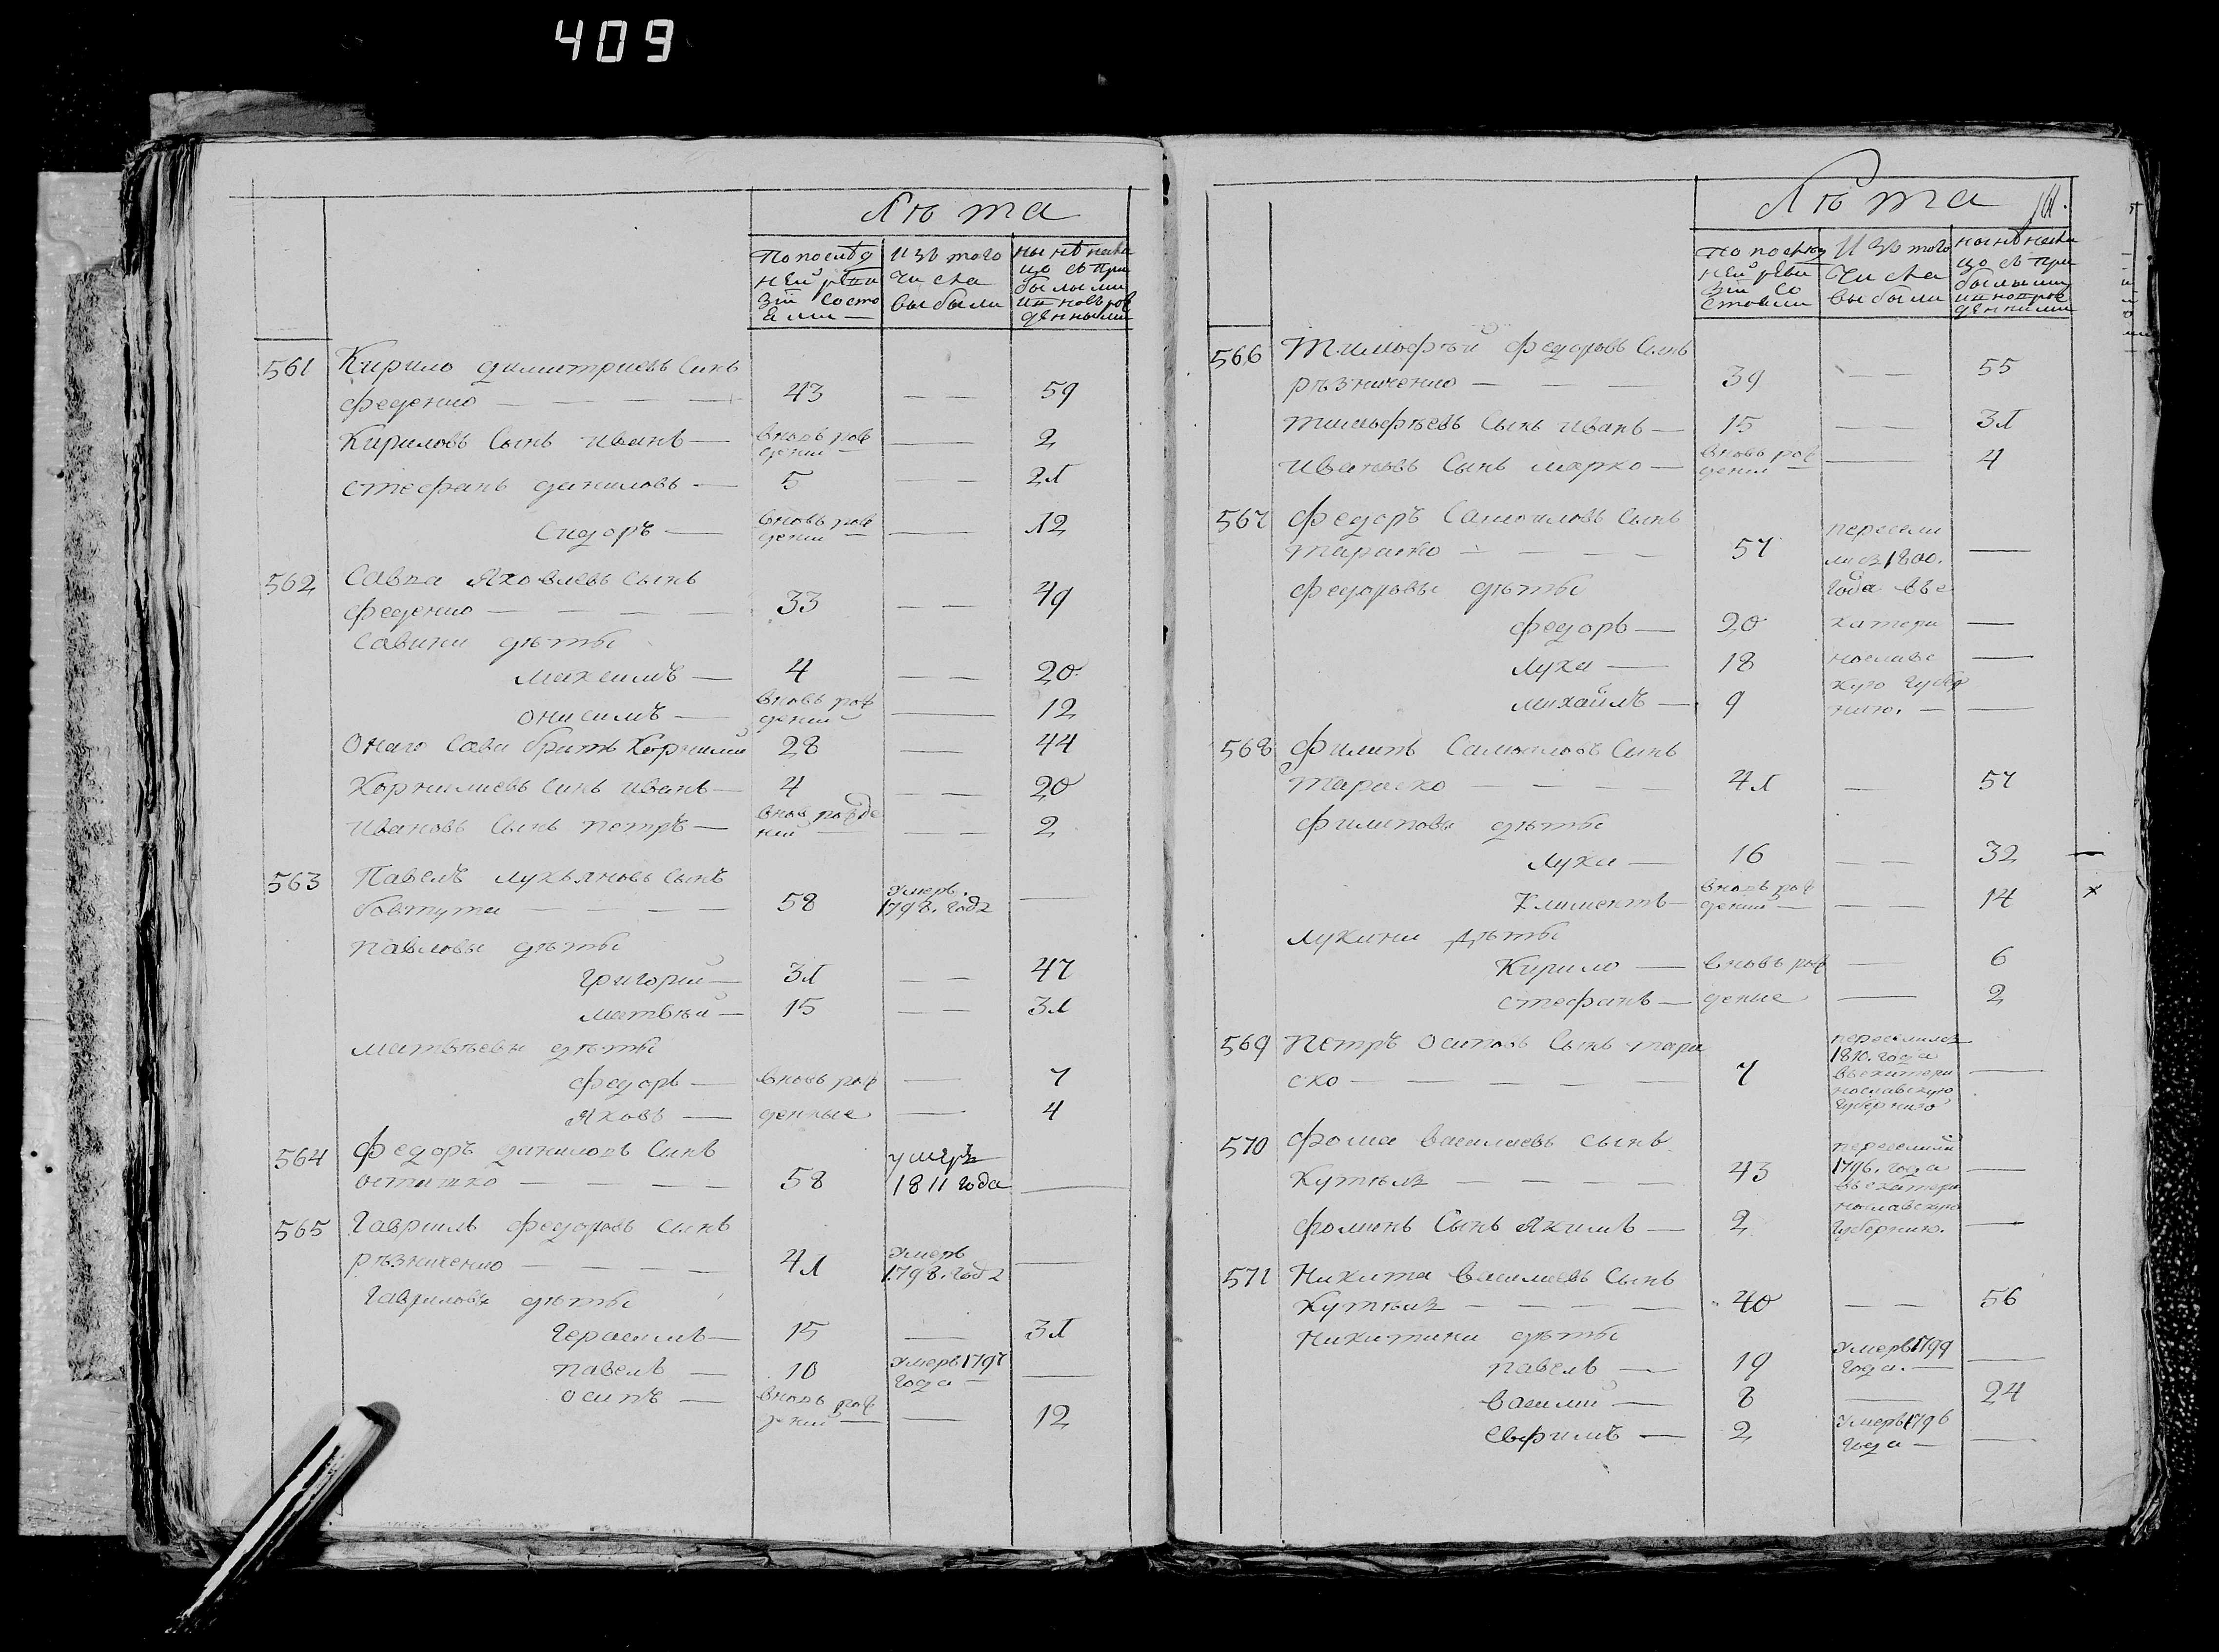 409
Лѣта
По послѣд
ней реви
зіи состо
яли —
Изъ того
числа
выбыли
нынѣ на ли
цо съ при
былыми
и новорож
денными
561 Кирило димитриевъ Синъ
феденко — — — — 43 — — 59
Кириловъ Сынъ иванъ — вновь рож
дений — — 2
стефанъ даниловъ — 5 — 21
Сидоръ — вновь рож
дений — — 12
562 Савка Яковлевъ сынъ
феденко — — — — 33 — — 49
Савини дѣты
максимъ — 4 — — 20
онисимъ — вновь рож
дений — 12
Онаго Сави братъ Корнилий 28 — 44
Корнилиевъ Синъ иванъ — 4 — — 20
ивановъ Сынъ петръ — вновь рожде
ний — — — 2
563 Павелъ лукьяновъ Сынъ
бовтута — — — — 58 умеръ
1798. года —
павловы дѣты
григорий — 31 — — 47
матвѣй — 15 — — 31
матвѣевы дѣты
федоръ — вновь рож — 7
Яковъ — денные — 4
564 Федоръ даниловъ Синъ
осташко — — — — 58 умеръ
1811 года —
565 Гаврилъ федоровъ сынъ
рѣзниченко — — — — 41 умеръ
1798. года —
Гавриловы дѣты
герасимъ — 15 — 31
павелъ — 10 умеръ 1797
года — —
осипъ — вновь рож
дений — — 12
Лѣта
По послѣд
ней реви
зіи со
стояли
Изъ того
числа
выбыли
нынѣ на ли
цо съ при
былыми
и новорож
денними
566 Тимофѣй федоровъ Сынъ
рѣзниченко — — — 39 — — 55
тимофѣевъ Сынъ иванъ — 15 — — 31
ивановъ Сынъ марко — вновь рож
дений — — 4
567 федоръ Самоиловъ Сынъ
тараско — — — — 57 пересели
лись 1800. —
федоровы дѣты года в ье
федоръ — 20 катери —
лука — 18 нославс —
кую губер
михайлъ — 9 нию. — —
568 Филипъ Самоиловъ Сынъ
тараско — — — — 41 — 57
филиповы дѣты
лука — 16 — — 32 —
Климентъ — вновь рож
дений — — — 14 x
лукини дѣты
Кирило — вновь рож — 6
стефанъ — дение — 2
569 Петръ осиповъ Сынъ тара
ско — — — — — 7 переселился
1810. года
въекатери —
нославскую
губернию
570 фома василиевъ сынъ
Кутнязъ — — — — 43 переселился
1796. года —
въекатери
нославскую
фоминъ Сынъ Якимъ — 2 губернию. —
571 Никита василиевъ Сынъ
Кутнязъ — — — — 40 — — 56
никитини дѣты
павелъ — 19 умеръ 1799
года. — —
василий — 8 — 24
Евфимъ — 2 умеръ 1796
года — —